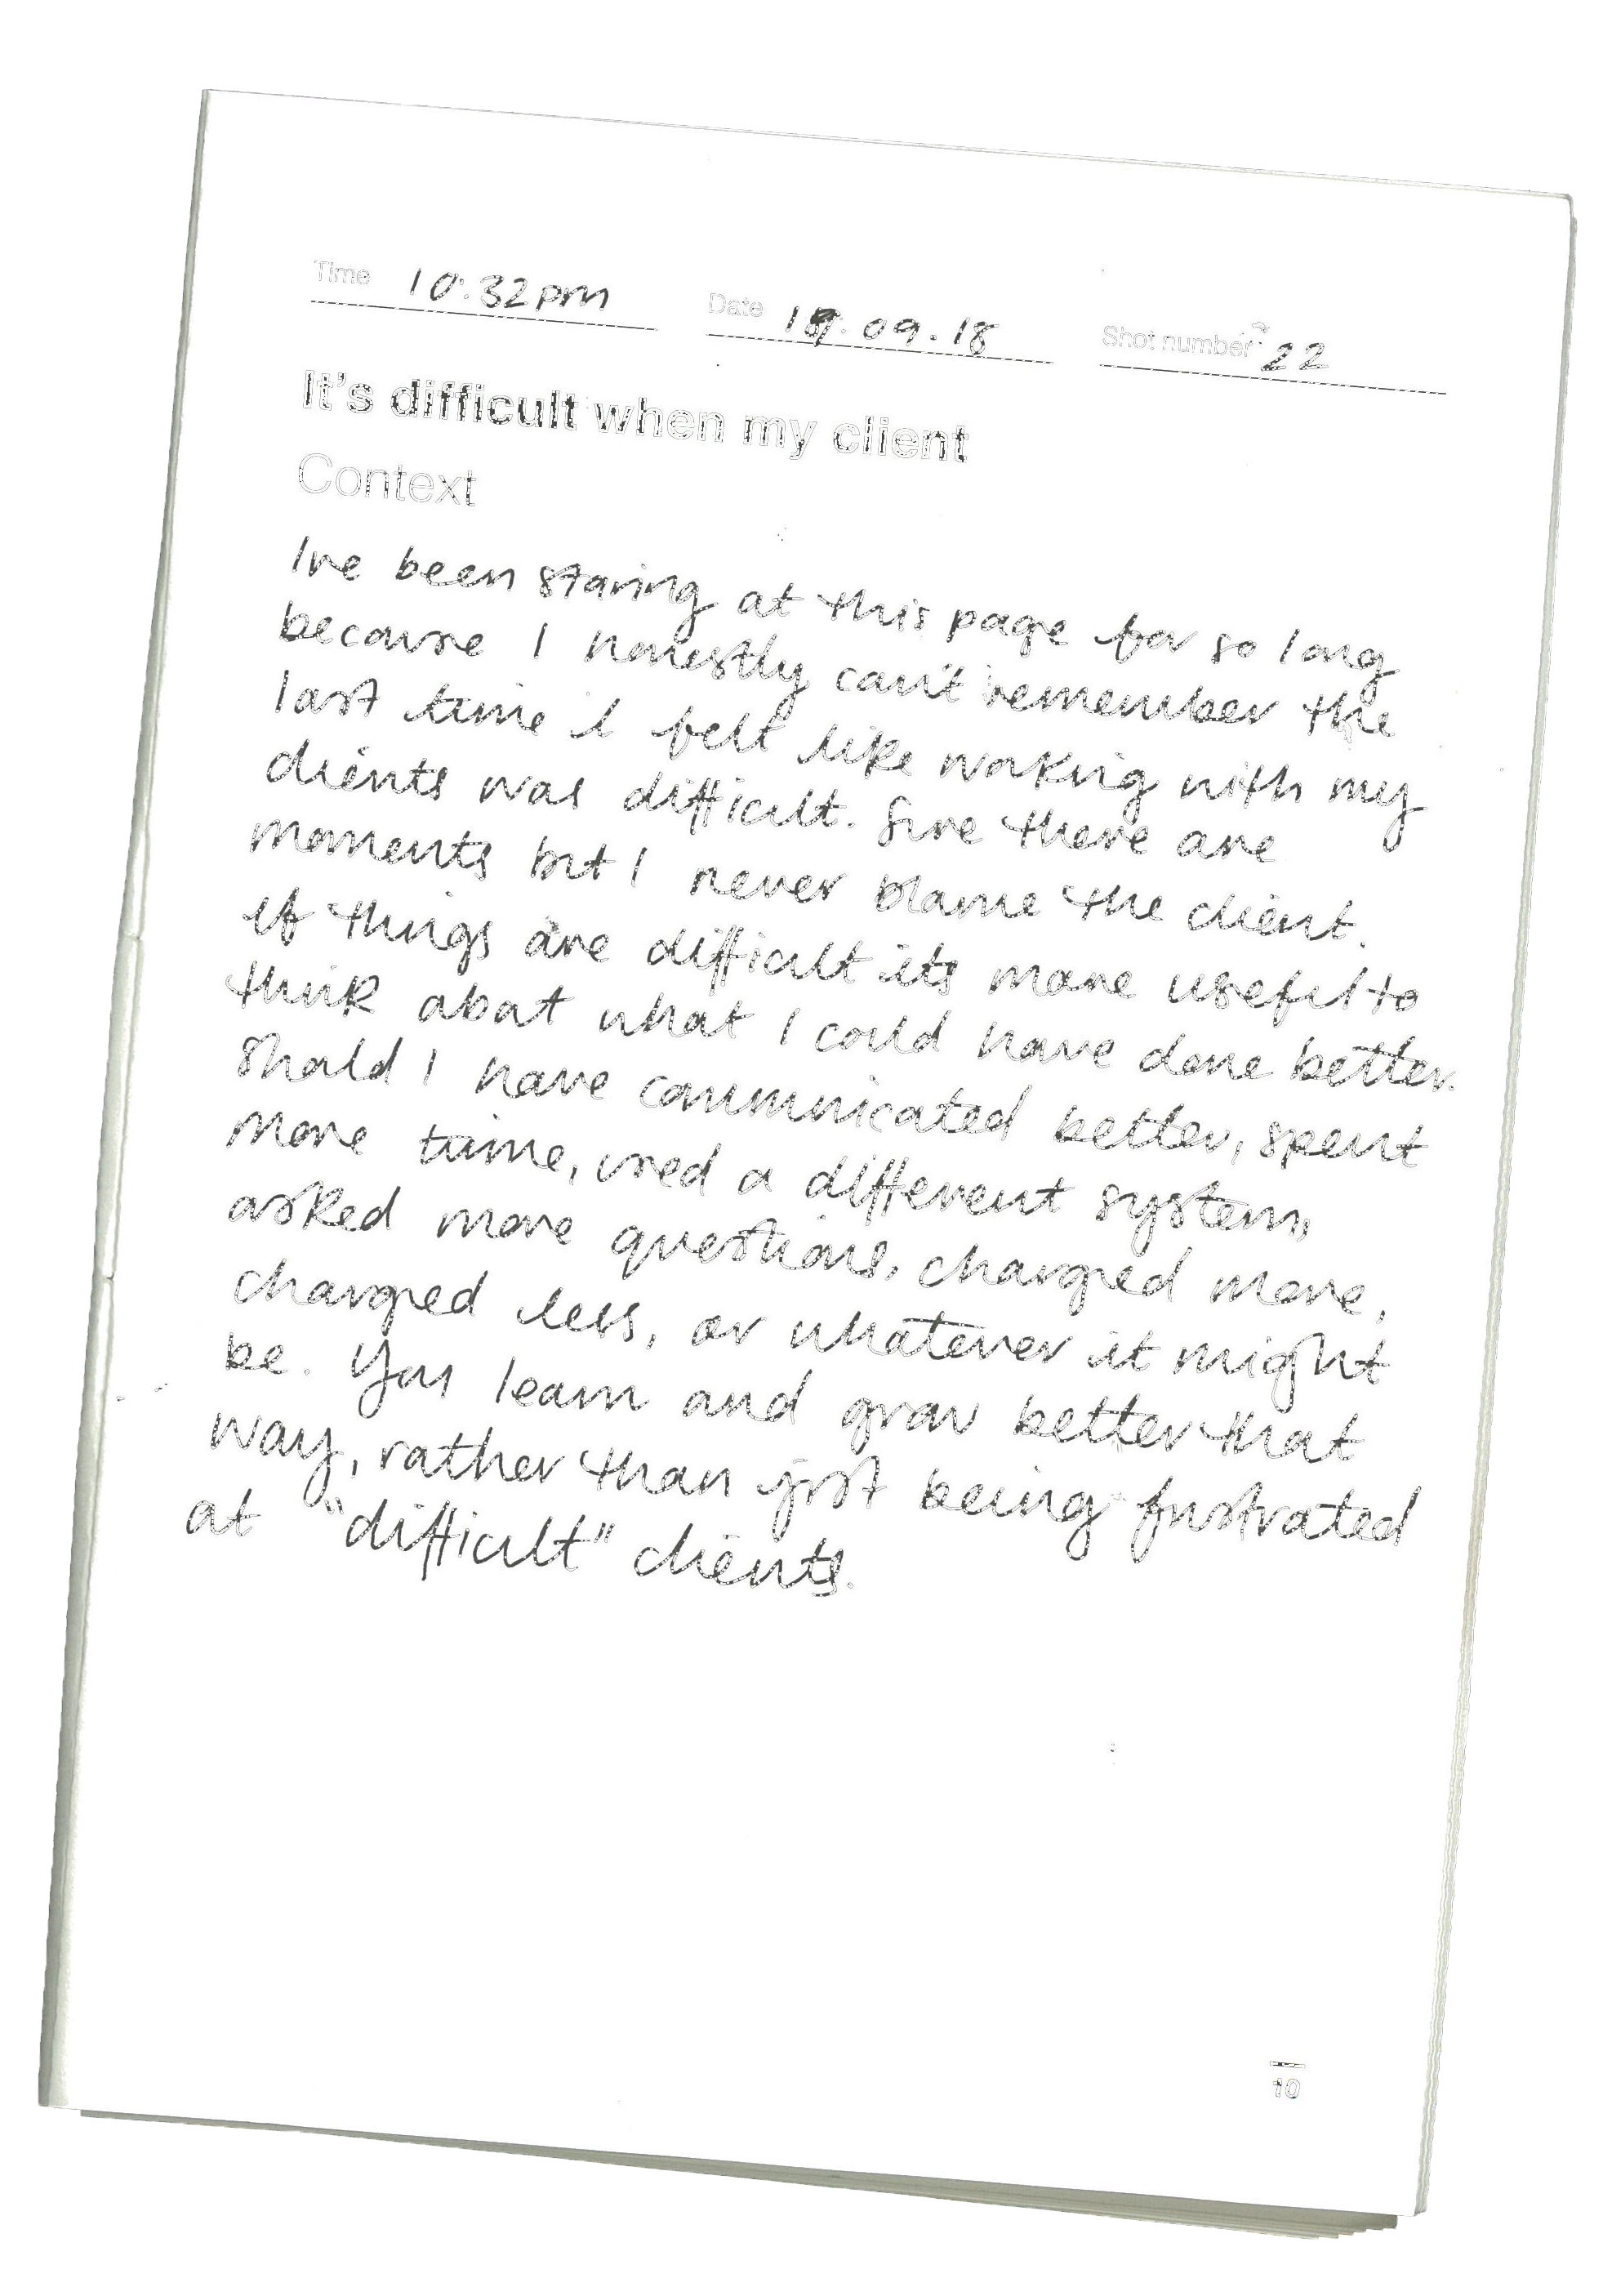 Time 10.32pm Date 09.18 Shot number 22
It's difficult when my client
Context
Ive been staring at this page for so long
because I honestly can't remember the
last time I felt like working with my
clients was difficult. Sure there are
moments but I never blame the client.
If things are difficult its more useful to
think about what I could have done better.
Should I have communicated better, spent
more time, used a different system,
asked more questions, charged more,
charged less, or whatever it might
be. You learn and grow better that
way, rather than just being frustrated
at "difficult" clients.
10